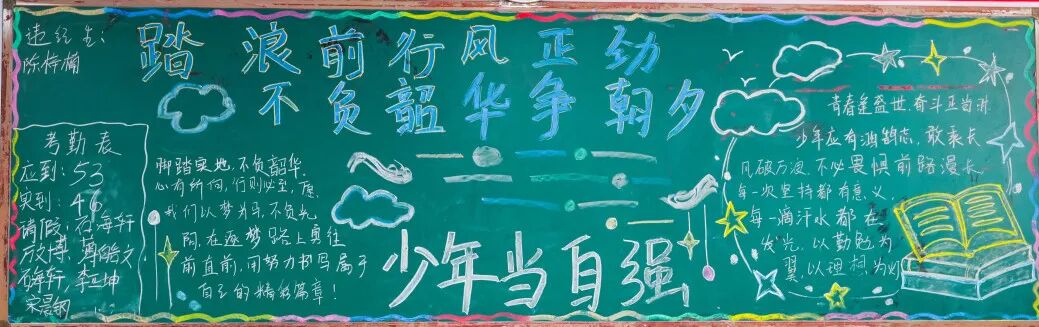 违纪生:
陈梓楠
踏浪前行风正劲
不负韶华争朝夕
考勤表
应到:53
实到:46
请假:石海轩
脚踏实地,不负韶华,
心有所向,行则必至,愿
我们以梦为马,不负韶
在逐梦路上勇往
直前,用努力书写属于
自己的精彩篇章!
少年当自强
青春逢盛世奋斗正当时
少年应有鸿鹄志,敢乘长
风破万浪,不必畏惧前路漫长
每一次坚持都有意义
每一滴汗水都在
发光,以勤勉为
翼,以理想为灯